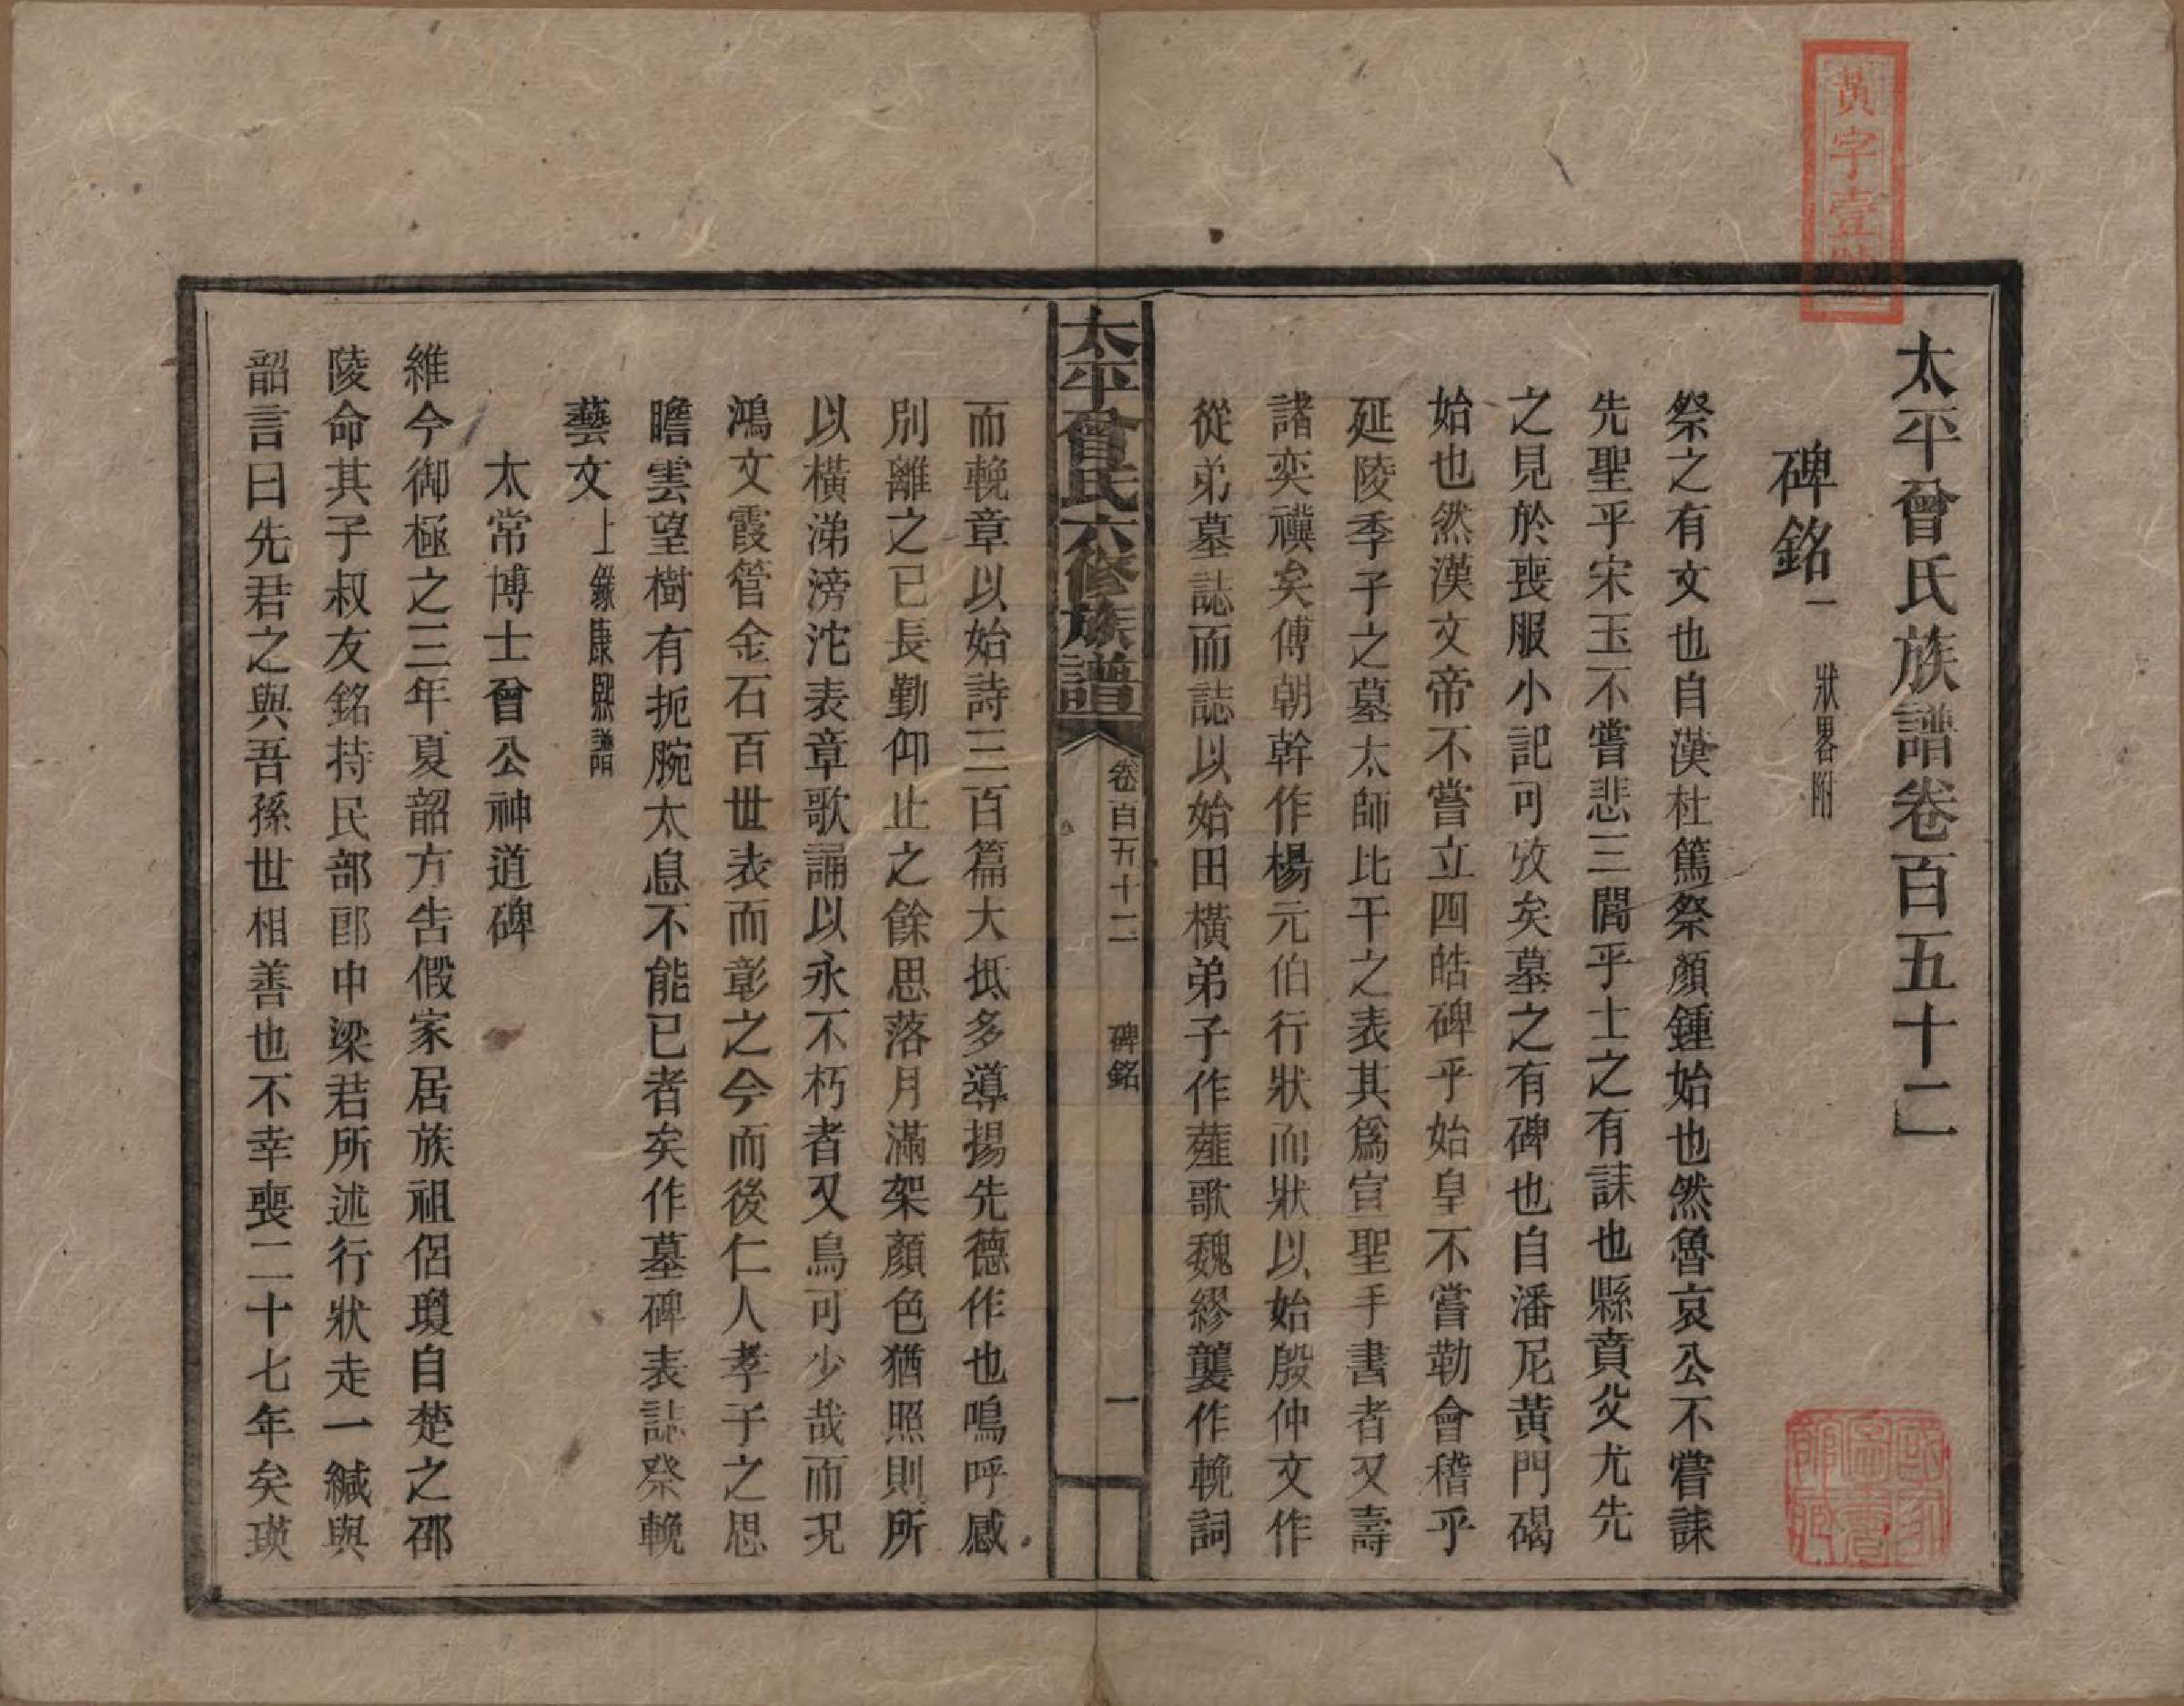 黃字壹號
太平曾氏族譜卷百五十二
碑銘一 狀畧附
祭之有文也自漢杜篤祭顏鍾始也然魯哀公不嘗誄
先聖乎宋玉不嘗悲三閭乎士之有誄也縣賁父尤先
之見於喪服小記可攷矣墓之有碑也自潘尼黃門碣
始也然漢文帝不嘗立四皓碑乎始皇不嘗勒會稽乎
延陵季子之墓太師比干之表其爲宣聖手書者又壽
諸奕禩矣傅朝幹作楊元伯行狀而狀以始殷仲文作
從弟墓誌而誌以始田橫弟子作薤歌魏繆襲作輓詞
太平曾氏六修族譜 卷百五十二 碑銘 一
而輓章以始詩三百篇大抵多導揚先德作也鳴呼感
別離之已長勤仰止之餘思落月滿架顏色猶照則所
以橫涕滂沱表章歌誦以永不朽者又烏可少哉而况
鴻文霞管金石百世表而彰之今而後仁人孝子之思
瞻雲望樹有扼腕太息不能已者矣作墓碑表誌祭輓
藝文上錄康熙譜
太常博士曾公神道碑
維今御極之三年夏韶方告假家居族祖侶瓊自楚之邵
陵命其子叔友銘持民部郎中梁君所述行狀走一緘與
韶言曰先君之與吾孫世相善也不幸喪二十七年矣瑛
國家圖書館藏